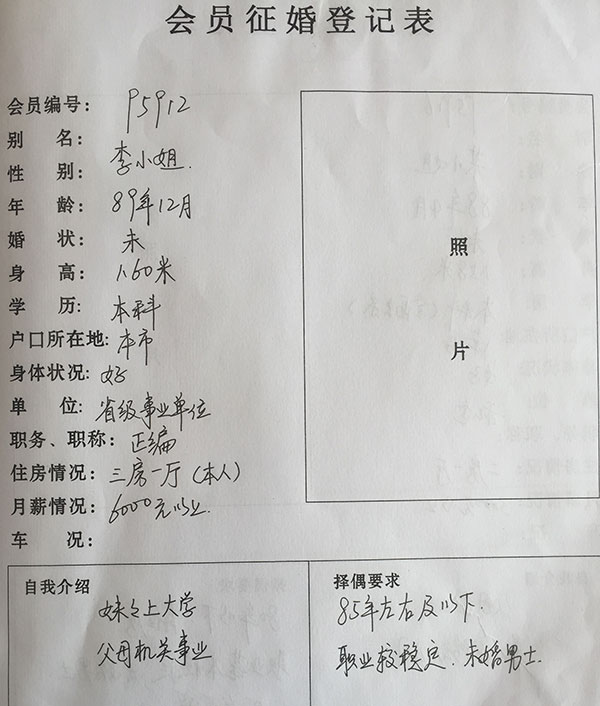 会员征婚登记表
会员编号: P5912
别 名:
性 别: 李小姐.
年 龄: 89年12月
婚 状: 未
身 高: 1.60米
学 历: 本科
户口所在地: 本市
身体状况: 好
单 位: 省级事业单位
职务、职称: 正编
住房情况: 三房一厅(本人)
月薪情况: 6000元以上.
车 况:
照
片
自我介绍
妹々上大学
父母机关事业
择偶要求
85年左右及以下.
职业较稳定.未婚男士.